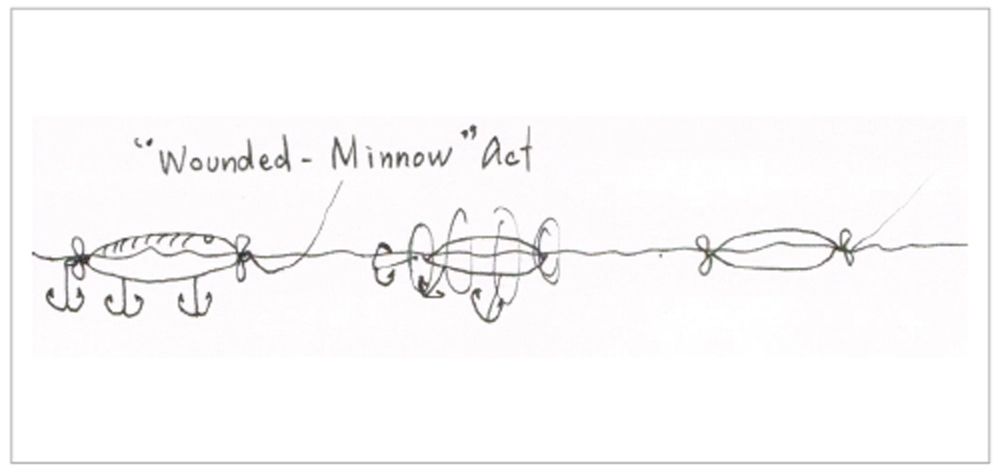 "Wounded-Minnow" Act